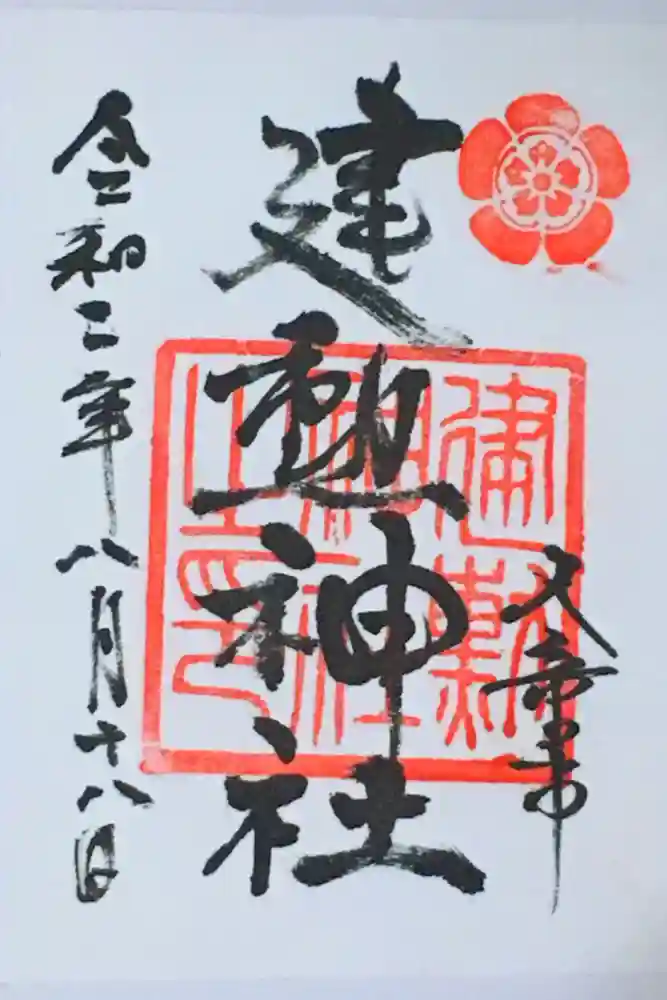 建勲神社
建勲
神社
之印
令和二年八月十八日